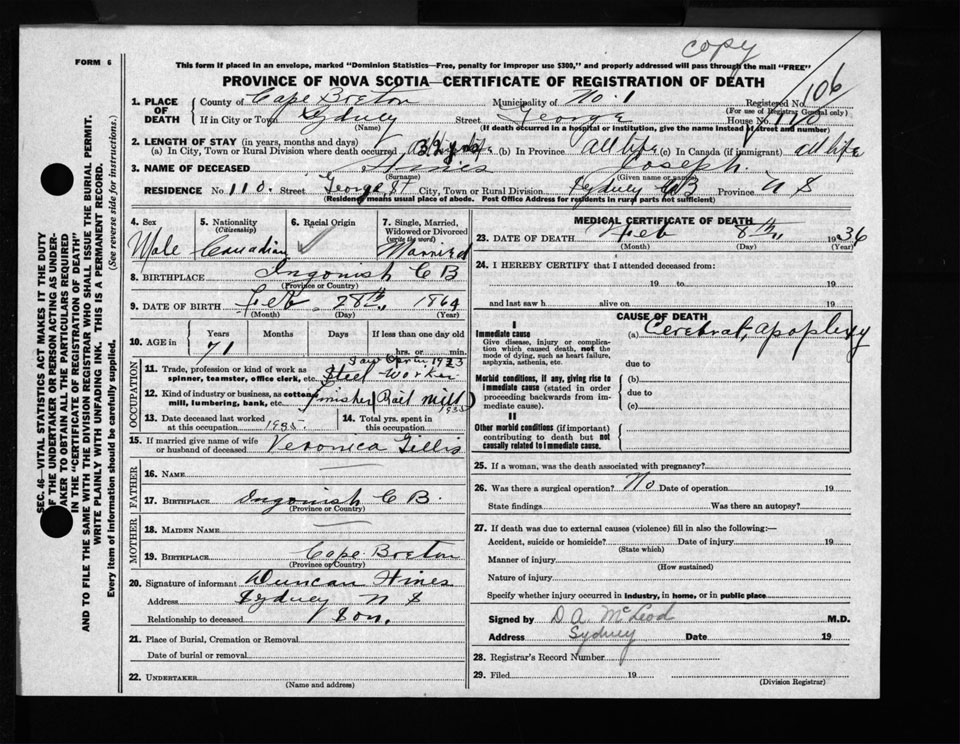 copy
FORM 6
This form if placed in an envelope, marked "Dominion Statistics—Free, penalty for improper use $300," and properly addressed will pass through the mail "FREE"
PROVINCE OF NOVA SCOTIA—CERTIFICATE OF REGISTRATION OF DEATH
106
1. PLACE OF DEATH
County of Cape Breton Municipality of No. 1 Registered No.
(For use of Registrar General only)
If in City or Town Sydney Street George House No. 110
(Name) (If death occurred in a hospital or institution, give the name instead of street and number)
2. LENGTH OF STAY (in years, months and days)
(a) In City, Town or Rural Division where death occurred 32 yrs (b) In Province all life (c) In Canada (if immigrant) all life
3. NAME OF DECEASED Hines Joseph
(Surname) (Given name or names)
RESIDENCE No. 110. Street George St City, Town or Rural Division Sydney CB Province N S
(Residency means usual place of abode. Post Office Address for residents in rural parts not sufficient)
4. Sex
Male
5. Nationality
(Citizenship)
Canadian
6. Racial Origin
7. Single, Married, Widowed or Divorced
(write the word)
Married
8. BIRTHPLACE Ingonish C B
(Province or Country)
9. DATE OF BIRTH Feb 28th 1864
(Month) (Day) (Year)
10. AGE in
Years Months Days If less than one day old
71 hrs. or min.
OCCUPATION
11. Trade, profession or kind of work as spinner, teamster, office clerk, etc. Steel Worker
12. Kind of industry or business, as cotton mill, lumbering, bank, etc. (Rail mill)
1935
13. Date deceased last worked at this occupation 1935.
14. Total yrs. spent in this occupation
15. If married give name of wife or husband of deceased Veronica Gillis
FATHER
16. NAME
17. BIRTHPLACE Ingonish C B.
(Province or Country)
MOTHER
18. MAIDEN NAME
19. BIRTHPLACE Cape Breton
(Province or Country)
20. Signature of informant Duncan Hines
Address Sydney N S
Relationship to deceased Son.
21. Place of Burial, Cremation or Removal
Date of burial or removal
22. UNDERTAKER
(Name and address)
MEDICAL CERTIFICATE OF DEATH
23. DATE OF DEATH Feb 8th 1936
(Month) (Day) (Year)
24. I HEREBY CERTIFY that I attended deceased from:
19 to 19
and last saw h alive on 19
CAUSE OF DEATH
I
Immediate cause
Give disease, injury or complication which caused death, not the mode of dying, such as heart failure, asphyxia, asthenia, etc.
(a) Cerebral apoplexy
due to
Morbid conditions, if any, giving rise to immediate cause (stated in order proceeding backwards from immediate cause).
(b)
due to
(c)
II
Other morbid conditions (if important) contributing to death but not causally related to immediate cause.
25. If a woman, was the death associated with pregnancy?
26. Was there a surgical operation? No Date of operation 19
State findings Was there an autopsy?
27. If death was due to external causes (violence) fill in also the following:—
Accident, suicide or homicide? Date of injury 19
(State which)
Manner of injury
(How sustained)
Nature of injury
Specify whether injury occurred in industry, in home, or in public place
Signed by D A McLeod M.D.
Address Sydney Date 19
28. Registrar's Record Number
29. Filed 19
(Division Registrar)
SEC. 46—VITAL STATISTICS ACT MAKES IT THE DUTY
OF THE UNDERTAKER OR PERSON ACTING AS UNDER-
TAKER TO OBTAIN ALL THE PARTICULARS REQUIRED
IN THE "CERTIFICATE OF REGISTRATION OF DEATH"
AND TO FILE THE SAME WITH THE DIVISION REGISTRAR WHO SHALL ISSUE THE BURIAL PERMIT.
WRITE PLAINLY WITH UNFADING INK. THIS IS A PERMANENT RECORD.
Every item of information should be carefully supplied. (See reverse side for instructions.)